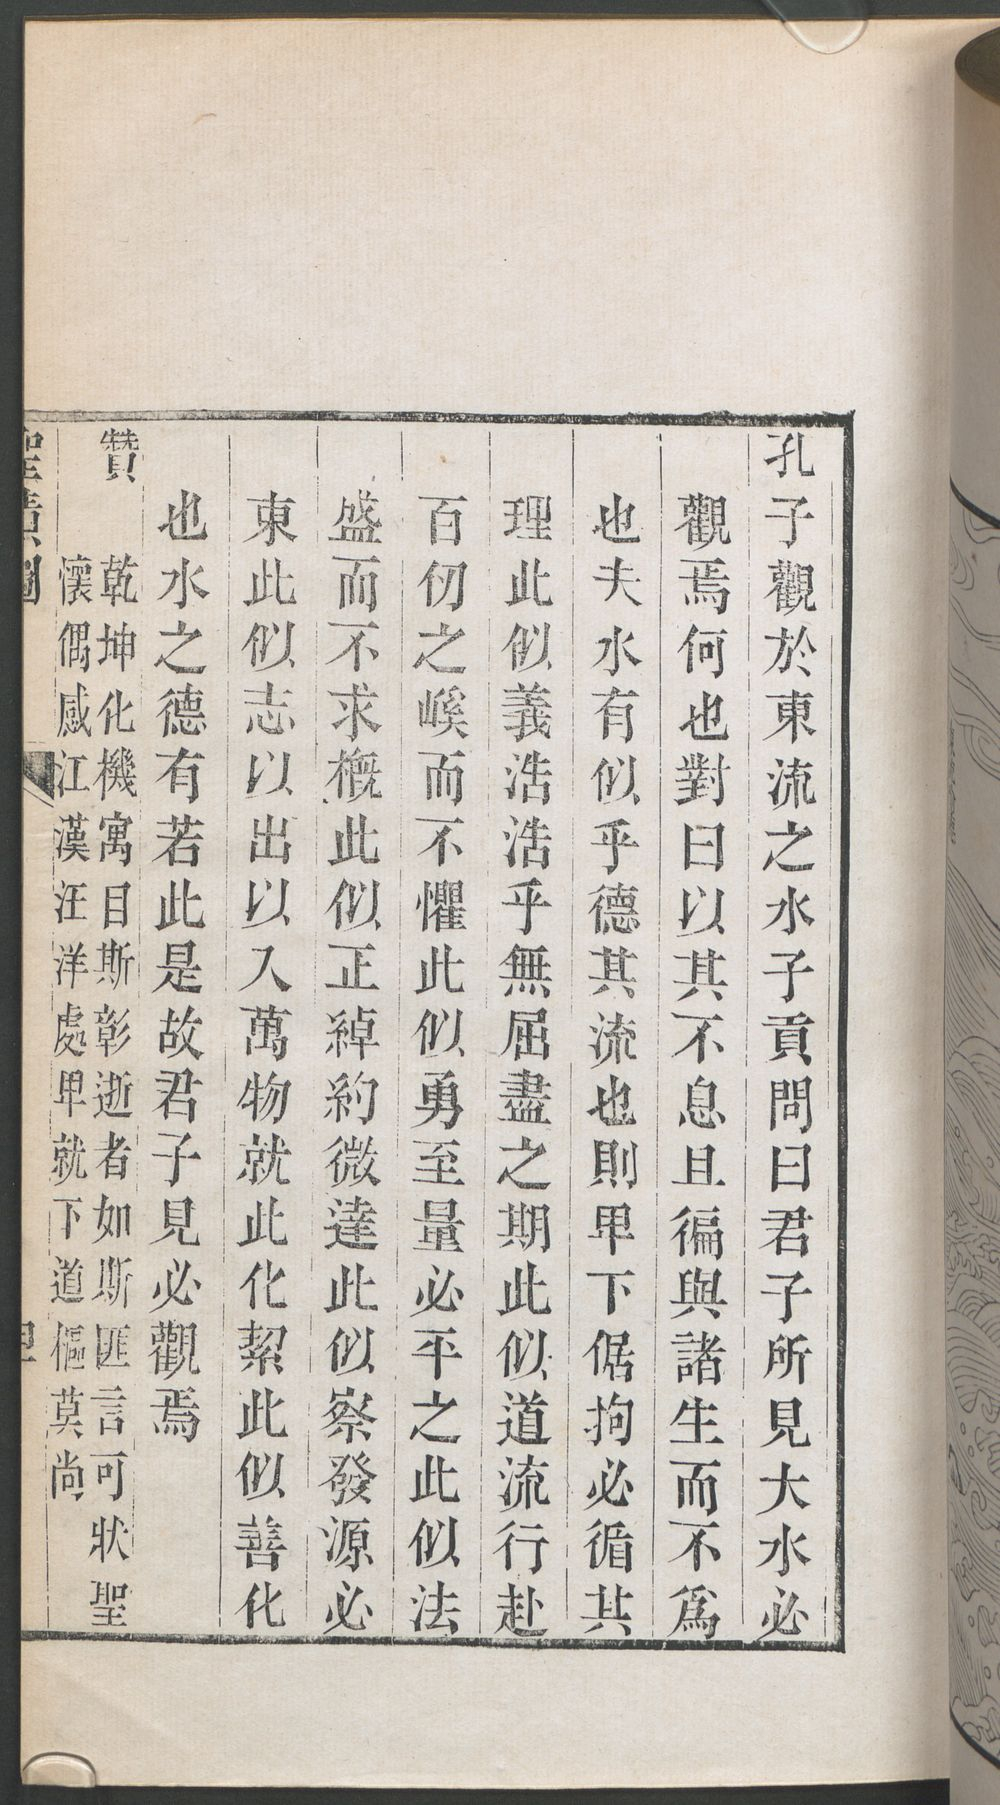 孔子觀於東流之水子貢問曰君子所見大水必
觀焉何也對曰以其不息且徧與諸生而不爲
也夫水有似乎德其流也則卑下倨拘必循其
理此似義浩浩乎無屈盡之期此似道流行赴
百仞之嵠而不懼此似勇至量必平之此似法
盛而不求槪此似正綽約微達此似察發源必
東此似志以出以入萬物就此化絜此似善化
也水之德有若此是故君子見必觀焉
贊
乾坤化機寓目斯彰逝者如斯匪言可狀聖
懷偶感江漢汪洋處卑就下道樞莫尚
聖蹟圖